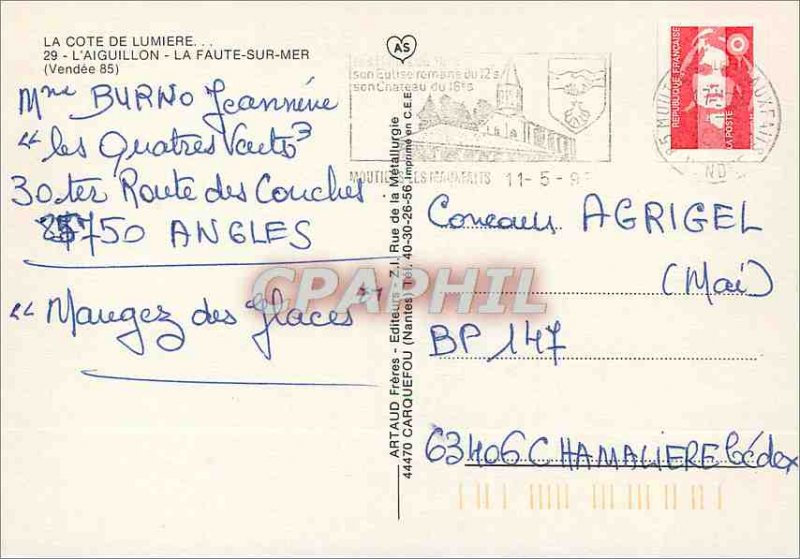 LA COTE DE LUMIERE...
29 - L'AIGUILLON - LA FAUTE-SUR-MER
(Vendée 85)
Mme BURNO Jeannine
"les Quatres Vents"
30 ter Route des Couches
85750 ANGLES
"Mangez des glaces"
AS
son Eglise romane du 12°s
son Château du 16°s
MOUTIERS LES MAUXFAITS 11-5-9
ARTAUD Frères - Editeurs - Z.I. Rue de la Métallurgie
44470 CARQUEFOU (Nantes) Tél. 40-30-26-56. Imprimé en C.E.E.
RÉPUBLIQUE FRANÇAISE
LA POSTE
Concours AGRIGEL
(Mai)
BP 147
63406 CHAMALIERE Cédex
CPAPHIL